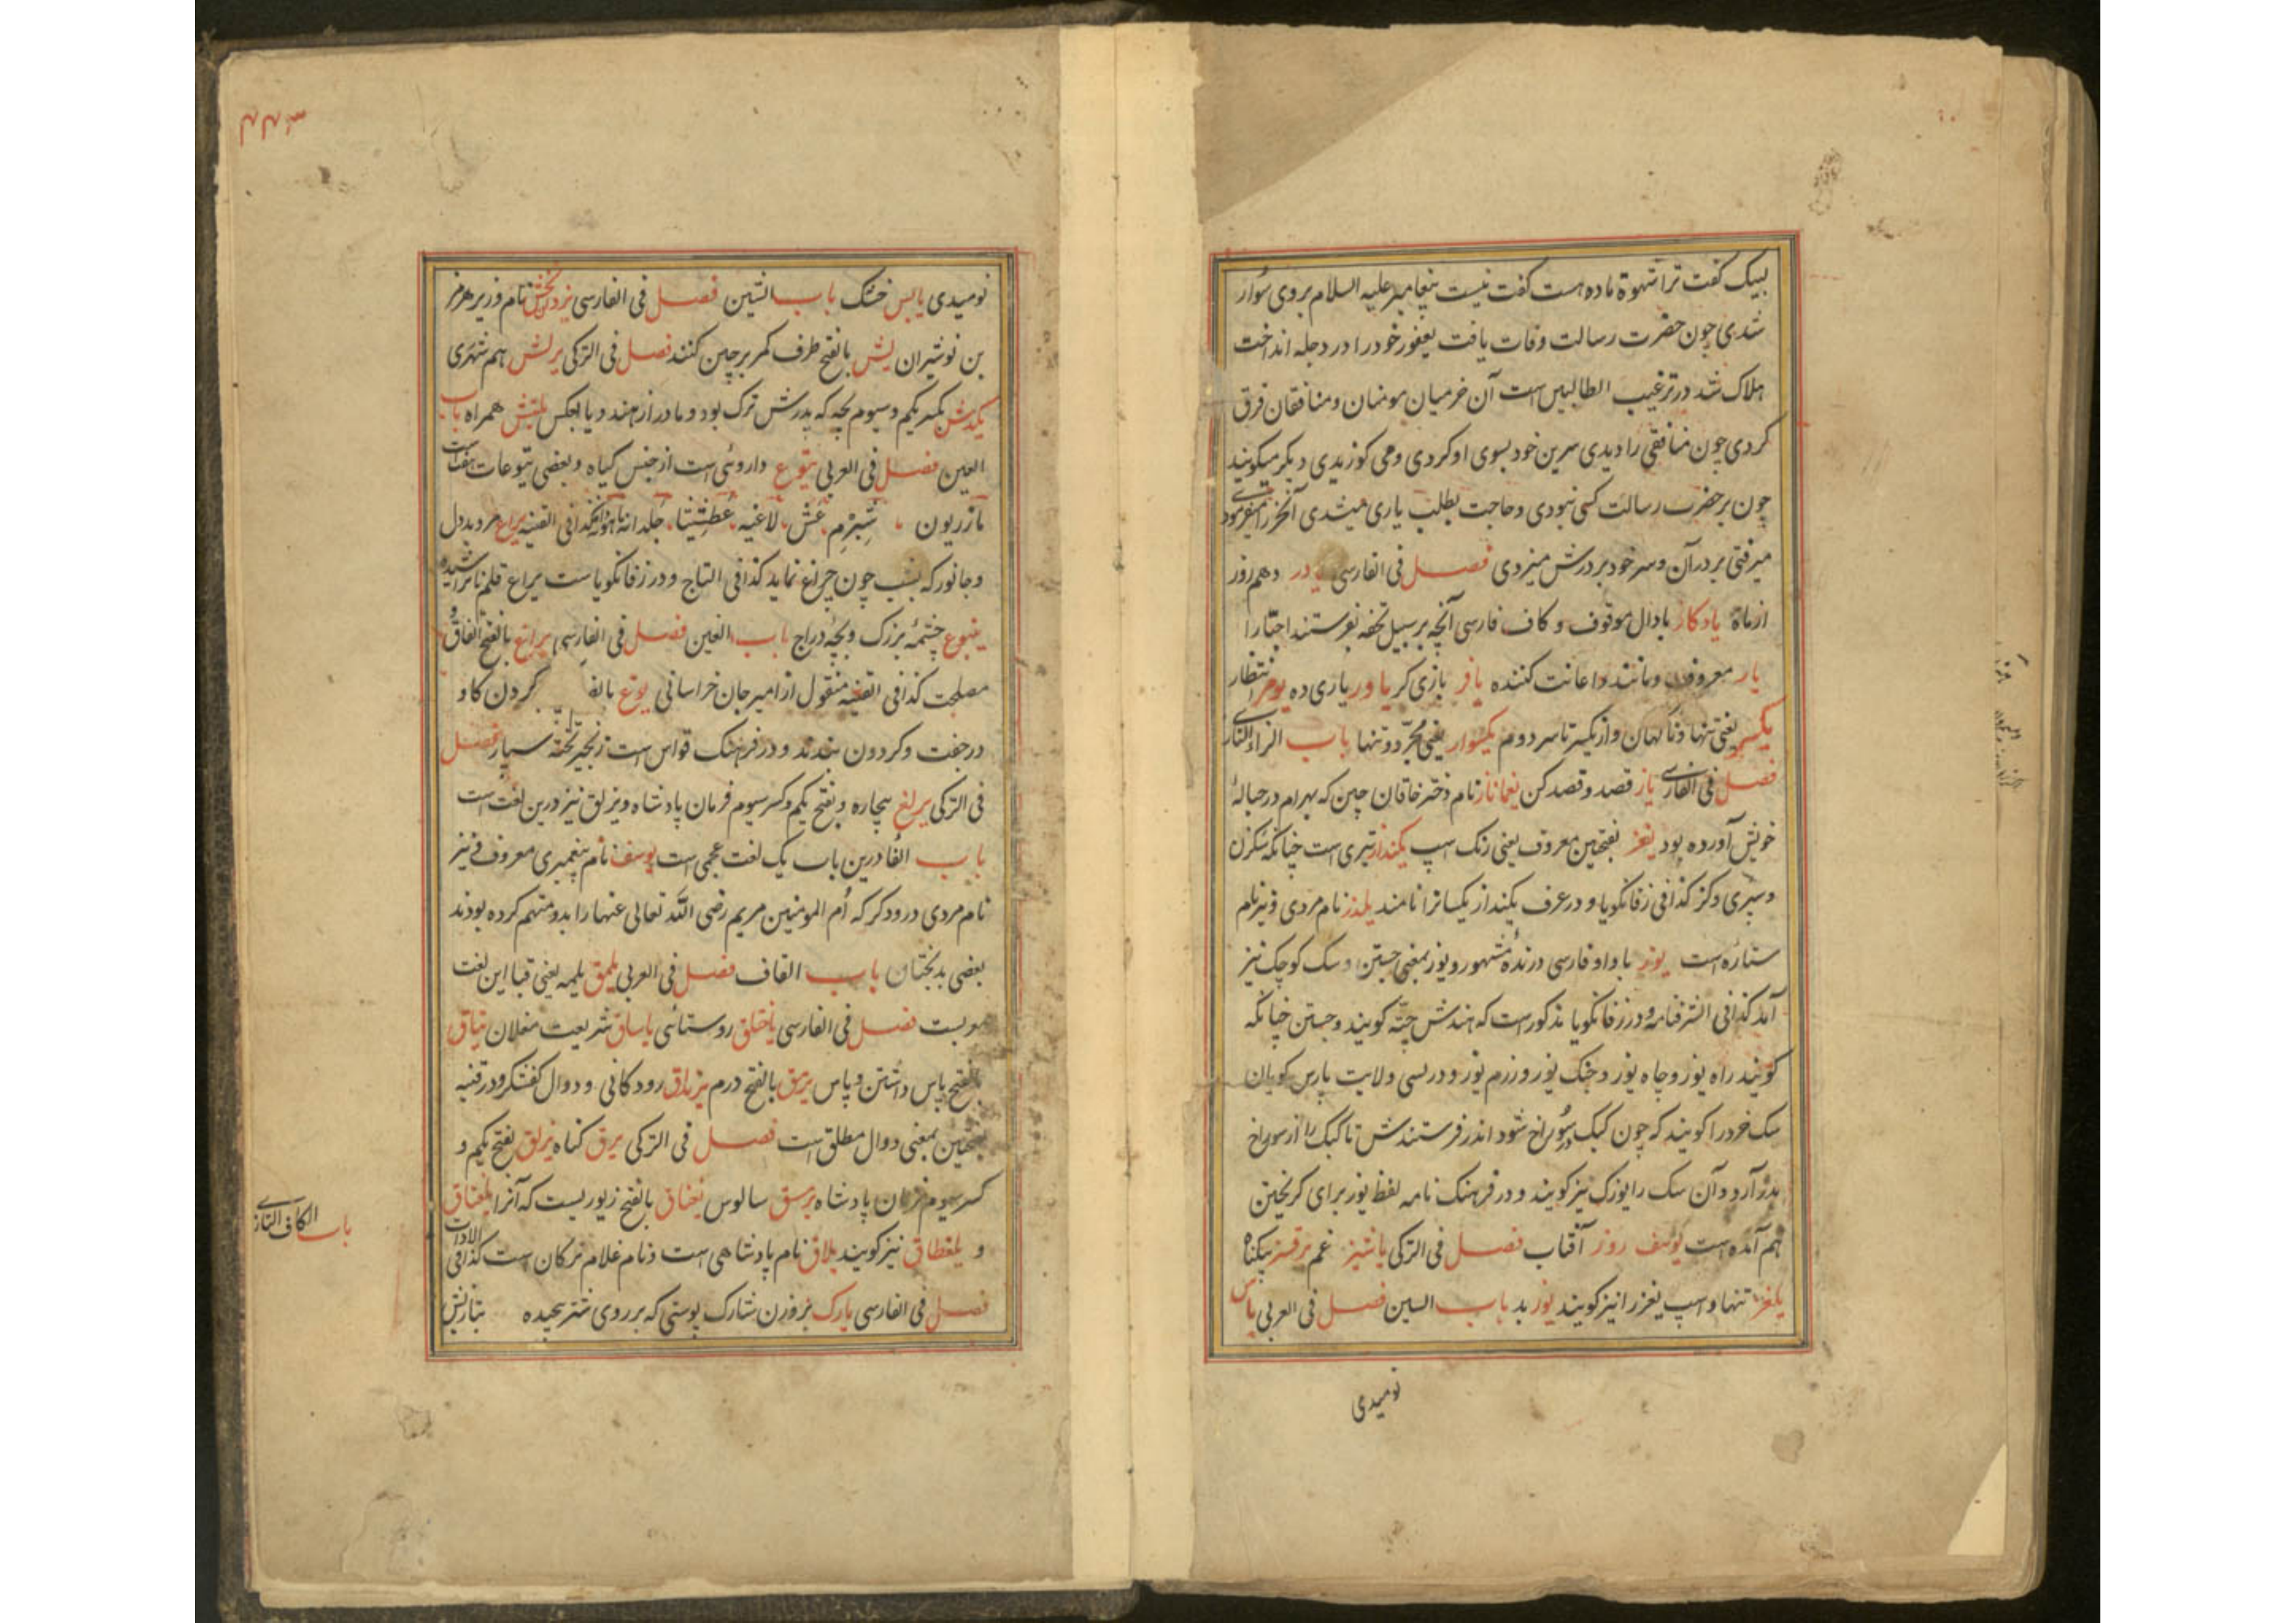 لبیک گفت ترا شهوة ماده هست گفت نیست پیغامبر علیه السلام بر وی سوار
شدی چون حضرت رسالت وفات یافت یعفور خود را در دجله انداخت
هلاک شد در ترغیب الطالبین است آن خر میان مومنان و منافقان فرق
کردی چون منافقی را دیدی سرین خود بسوی او کردی و می کوزیدی دیگر میگویند
چون بر حضرت رسالت کسی نبودی و حاجت بطلب یاری میشدی آنخر را میفرمود
میرفتی بر در آن و سر خود بر درش میزدی فصل فی الفارسی یادر دهم روز
از ماه یادکار با دال موقوف و کاف فارسی آنچه بر سبیل تحفه بفرستند احبا را
یار معروف و مانند و اعانت کننده یافر بازی کر یاور یاری ده یومر منتظار
یکسر یعنی تنها و ناکهان و از یکسر تا سر دوم یکسوار یعنی مجرد و تنها باب الزاء التازی
فصل فی الفارسی یاز قصد و قصد کن یغماناز نام دختر خاقان چین که بهرام در حباله
خویش آورده بود یغز بفتحین معروف یعنی رنک اسپ یکنداز تیری است چنانکه شکرن
و سپری و کز کذا فی زفانکویا و در عرف یکنداز یکساترا نامند یلدز نام مردی و نیز نام
ستاره است یوز با واو فارسی درنده مشهور و یوز بمعنی جستن و سک کوچک نیز
آمد کذا فی الشرفنامه و در زفانکویا مذکور است که هندش چیته کویند و جستن چنانکه
کویند راه یوز و چاه یوز و جنک یوز و رزم یوز و در لسی ولایت پارس کویان
سک خرد را کویند که چون کبک در سوراخ شود اندر فرستندش تا کبک را از سوراخ
بدر آرد و آن سک را یوزک نیز کویند و در فرهنک نامه لفظ یوز برای کریختن
هم آمده است یوسف روز آفتاب فصل فی الترکی یاشیز غم یرقسز بیکناه
یلغز تنها و اسپ یغز را نیز کویند یوز بد باب السین فصل فی العربی یاس
نومیدی
۴۴۳
نومیدی یابس خشک باب الشین فصل فی الفارسی یزدبخش نام وزیر هرمز
بن نوشیران یش بالفتح طرف کمر بر چین کنند فصل فی الترکی یرلش هم شهری
یکدش بکسر یکم و سیوم بچه که پدرش ترک بود و مادر از هند و یا بعکس یلتش همراه باب
العین فصل فی العربی یتوع داروئی است از جنس گیاه و بعضی یتوعات هفت است
مازریون شبرم عشر لاغیه عطشیثا جلدانه ماهودانه کذا فی القنیه یراع مرد بددل
و جانور که بشب چون چراغ نماید کذا فی التاج و در زفانکویا است یراع قلم ناتراشیده
ینبوع چشمه بزرک و بچه دراج باب الغین فصل فی الفارسی یراغ بالفتح اتفاق و
مصلحت کذا فی القنیه منقول از امیر جان خراسانی یوغ بالف کردن کاو
در جفت و کردون بندند و در فرهنک قواس است زنجیر تخته سیار فصل
فی الترکی یرلغ بیچاره و بفتح یکم و کسر سیوم فرمان پادشاه و یرلق نیز درین لغت است
باب الفا درین باب یک لغت عجمی است یوسف نام پیغمبری معروف و نیز
نام مردی درودکر که ام المومنین مریم رضی الله تعالی عنها را بدو متهم کرده بودند
بعضی بدبختان باب القاف فصل فی العربی یلمق یلمه یعنی قبا این لغت
معربست فصل فی الفارسی یاختلق روستائی یاساق شریعت مغلان یتاق
بالفتح پاس داشتن و پاس یرمق بالفتح درم یزنداق رود کانی و دوال کفشکر و در قنیه
بفتحین بمعنی دوال مطلق است فصل فی الترکی یرق کناه یرلق بفتح یکم و
کسر سیوم فرمان پادشاه یرسق سالوس یغناق بالفتح زیوریست که آنرا یلغناق
و یلغطاق نیز کویند یلاق نام پادشاهی است و نام غلام ترکان است کذا فی الادات
فصل فی الفارسی یارک بر وزن شارک پوستی که بر روی شتر بچیده بتازیش
باب الکاف التازی